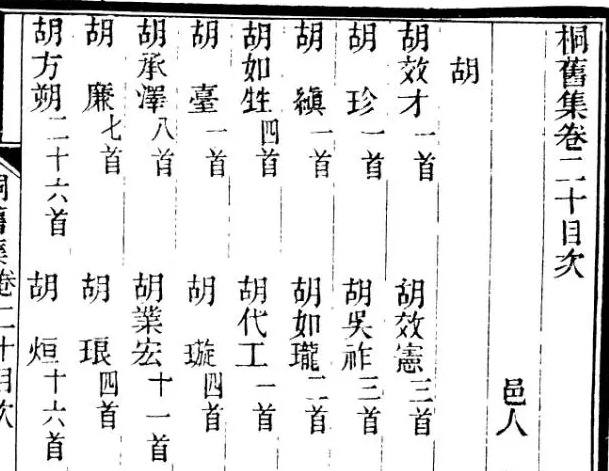 桐舊集卷二十目次
邑人
胡
胡效才一首 胡效憲三首
胡珍一首 胡吳祚三首
胡縝一首 胡如瓏二首
胡如甡四首 胡代工一首
胡臺一首 胡璇四首
胡承澤八首 胡業宏十一首
胡廉七首 胡琅四首
胡方朔二十六首 胡烜十六首
桐舊集卷二十目次